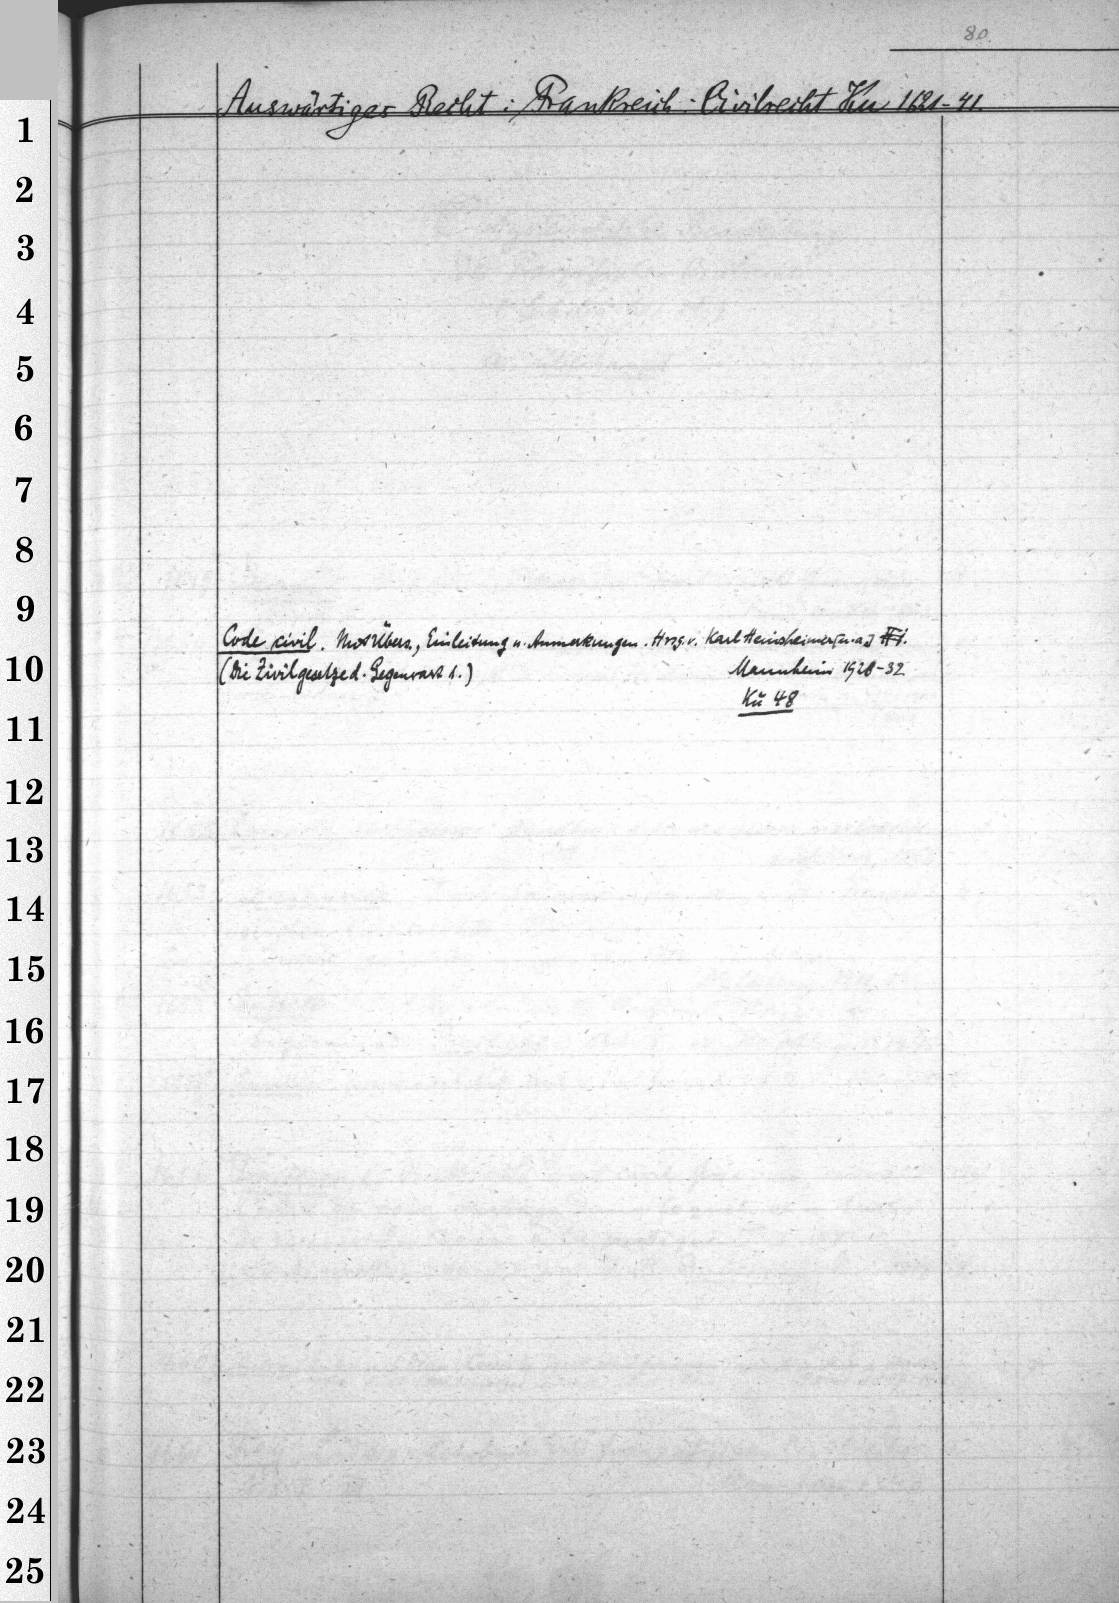 80.
Auswärtiges Recht : Frankreich : Civilrecht Ku 1621-41.
1
2
3
4
5
6
7
8
9
Code civil. Mit Übers., Einleitung u. Anmerkungen. Hrsg. v. Karl Heinsheimer [u. a.]
10
(Die Zivilgesetze d. Gegenwart 1.) Mannheim 1928-32
Kü 48
11
12
13
14
15
16
17
18
19
20
21
22
23
24
25